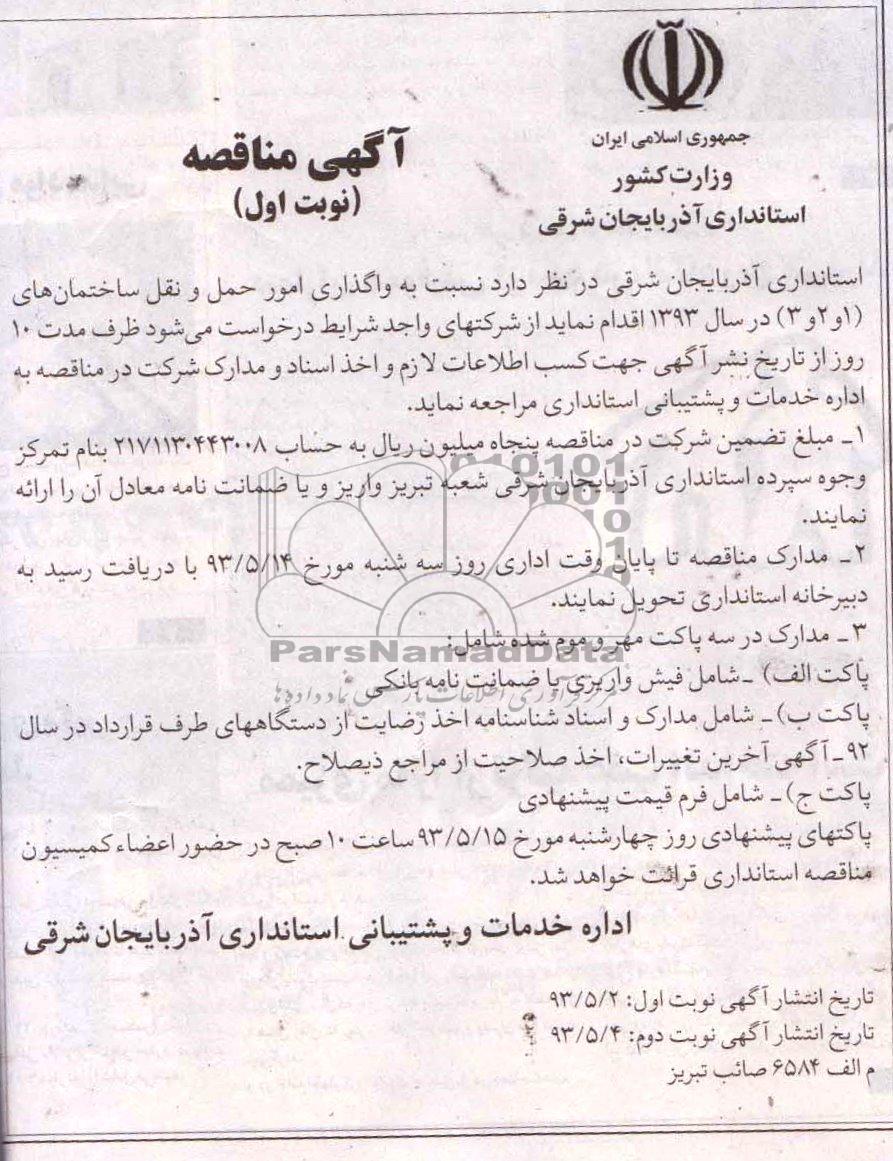 جمهوری اسلامی ایران
وزارت کشور
استانداری آذربایجان شرقی
آگهی مناقصه
(نوبت اول)
استانداری آذربایجان شرقی در نظر دارد نسبت به واگذاری امور حمل و نقل ساختمان‌های
(۱و۲و ۳) در سال ۱۳۹۳ اقدام نماید از شرکتهای واجد شرایط درخواست می‌شود ظرف مدت ۱۰
روز از تاریخ نشر آگهی جهت کسب اطلاعات لازم و اخذ اسناد و مدارک شرکت در مناقصه به
اداره خدمات و پشتیبانی استانداری مراجعه نماید.
۱ـ مبلغ تضمین شرکت در مناقصه پنجاه میلیون ریال به حساب ۲۱۷۱۱۳۰۴۴۳۰۰۸ بنام تمرکز
وجوه سپرده استانداری آذربایجان شرقی شعبه تبریز واریز و یا ضمانت نامه معادل آن را ارائه
نمایند.
۲ـ مدارک مناقصه تا پایان وقت اداری روز سه شنبه مورخ ۹۳/۵/۱۴ با دریافت رسید به
دبیرخانه استانداری تحویل نمایند.
۳ـ مدارک در سه پاکت مهر و موم شده شامل:
ParsNamadData
پاکت الف) ـ شامل فیش واریزی یا ضمانت نامه بانکی
پاکت ب) ـ شامل مدارک و اسناد شناسنامه اخذ رضایت از دستگاههای طرف قرارداد در سال
۹۲ـ آگهی آخرین تغییرات، اخذ صلاحیت از مراجع ذیصلاح.
پاکت ج) ـ شامل فرم قیمت پیشنهادی
پاکتهای پیشنهادی روز چهارشنبه مورخ ۹۳/۵/۱۵ ساعت ۱۰ صبح در حضور اعضاء کمیسیون
مناقصه استانداری قرائت خواهد شد.
اداره خدمات و پشتیبانی استانداری آذربایجان شرقی
تاریخ انتشار آگهی نوبت اول: ۹۳/۵/۲
تاریخ انتشار آگهی نوبت دوم: ۹۳/۵/۴
م الف ۶۵۸۴ صائب تبریز